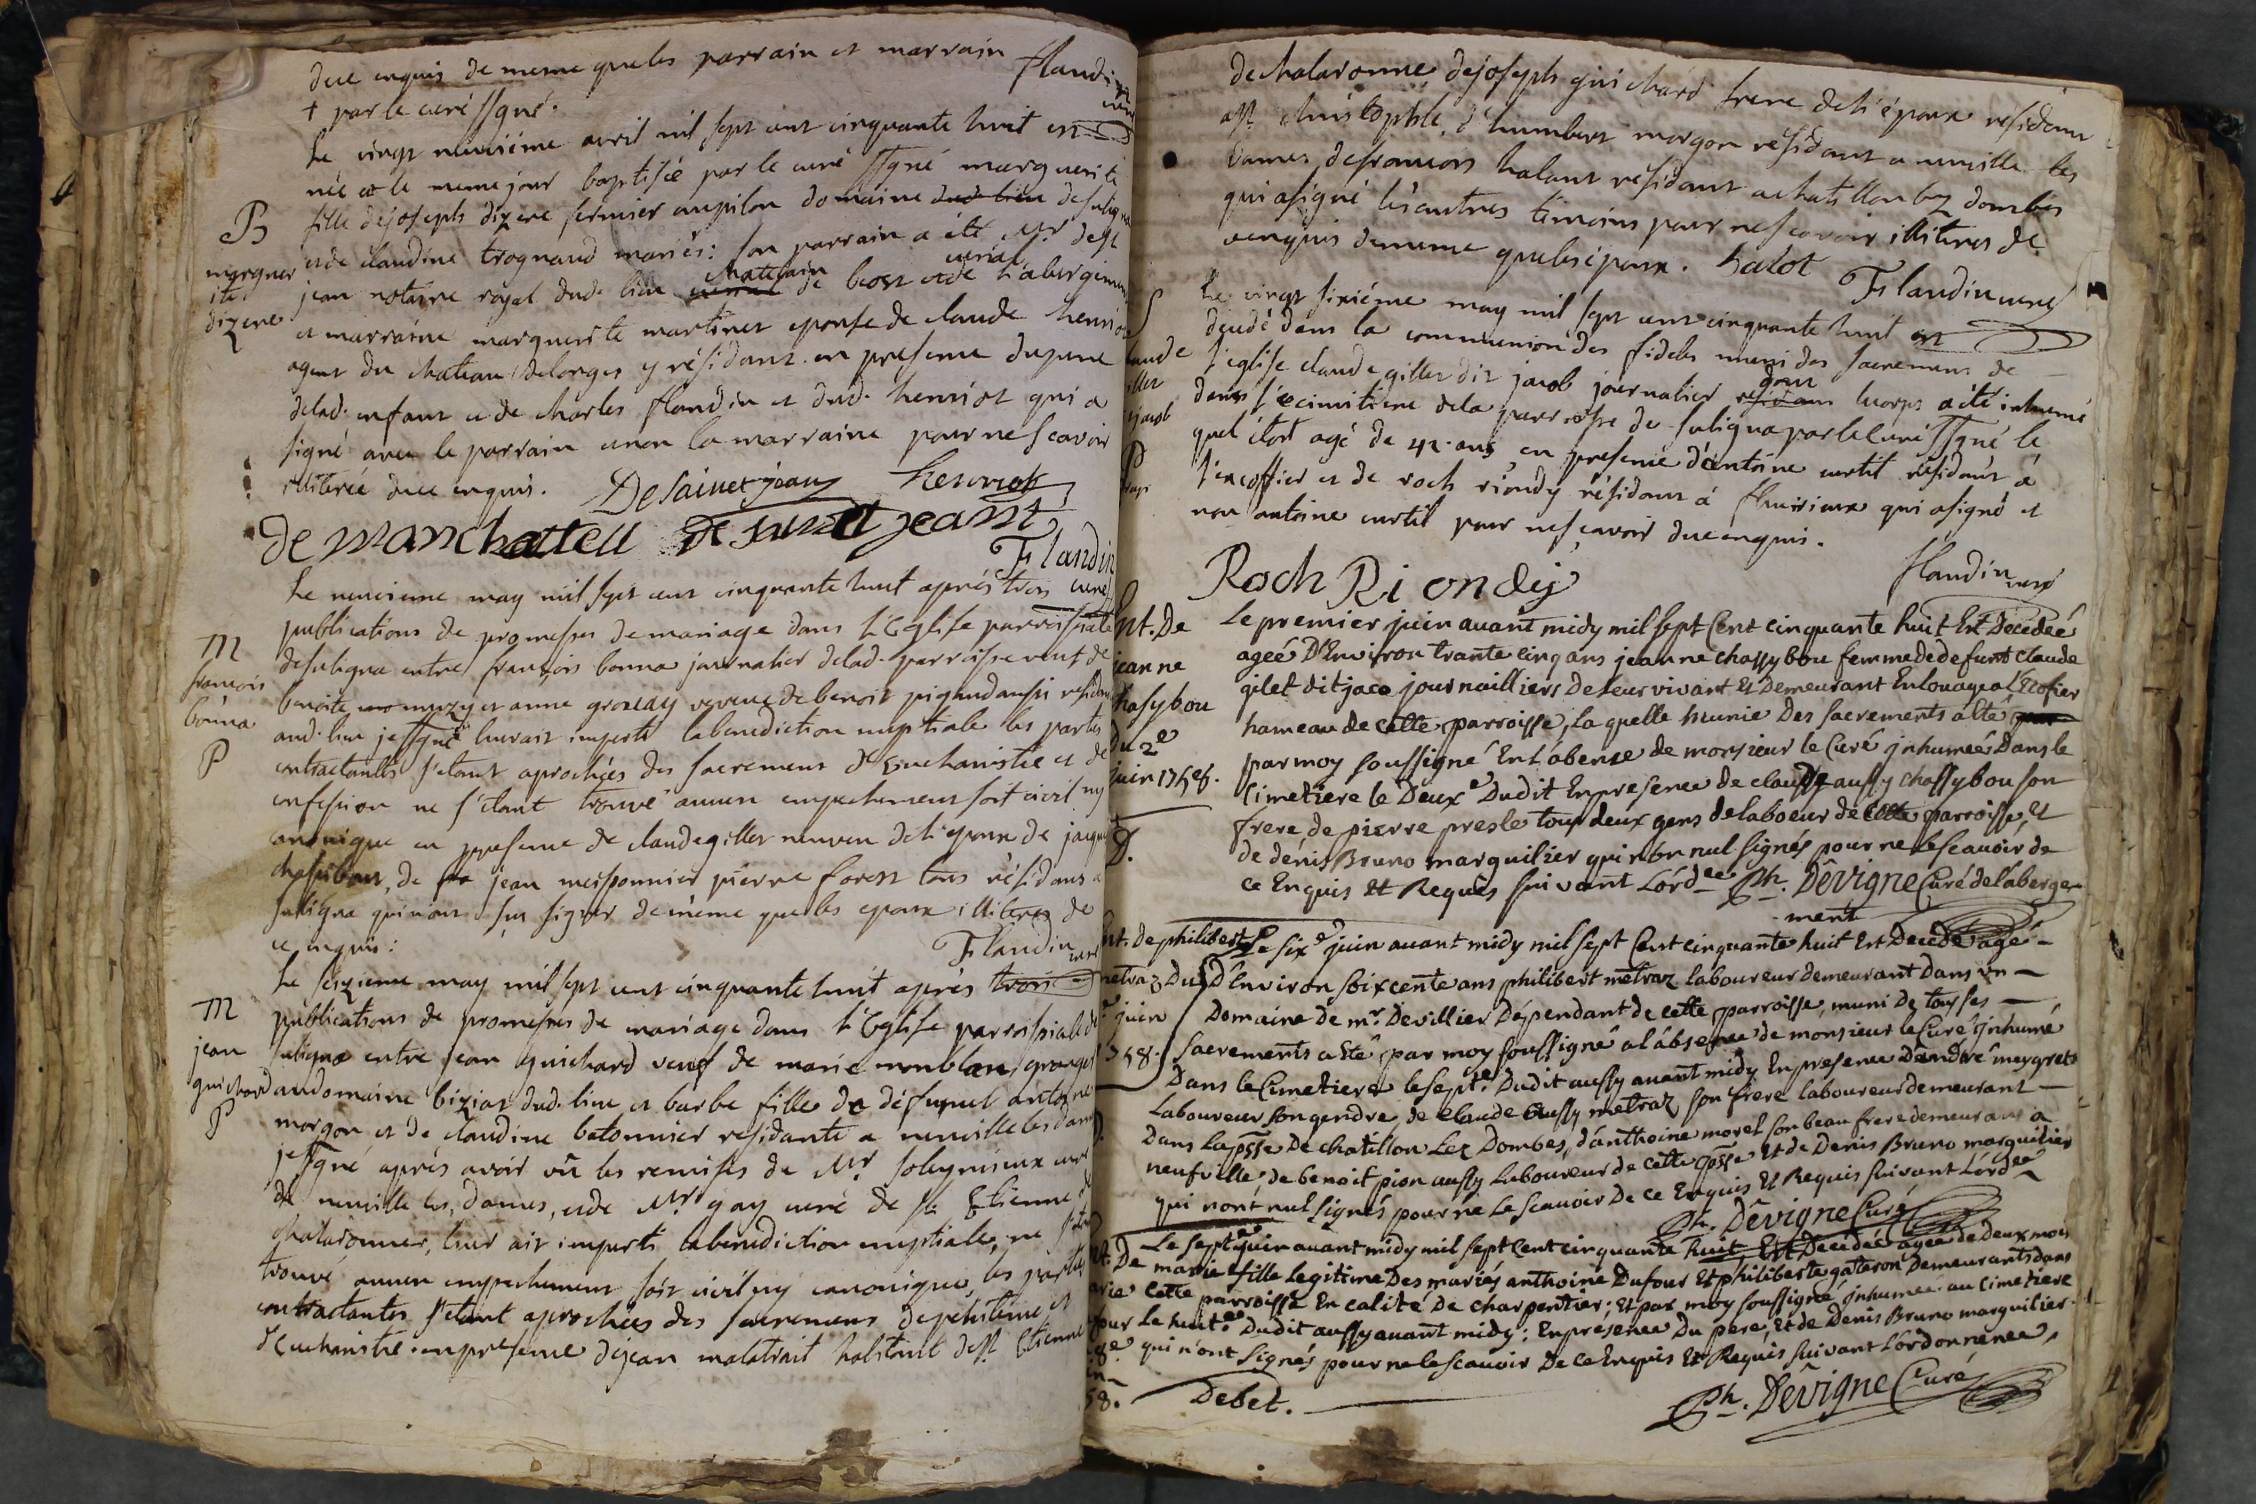 duë enquis de meme que les parrain et marrain flandin
+ par le curé ssgné. curé
Le vingt neuvième avril mil sept cent cinquante huit est
née et le meme jour baptisée par le curé ssgné marguerite
B
marguerite dizere
fille de joseph dizere fermier au pilon domaine de suligna
et de claudine trognaud mariés: son parrain a été Mr dest
jean notaire royal dud. lieu chatelain de beost et de l'abergement
et marraine marguerite martinet epouse de claude henriot
agent du chateau de longes y résidant en presence du pere
delad. enfant et de charles flandin et dud. henriot qui a
signé avec le parrain et non la marraine pour ne scavoir
illiterée duë enquis. Desainct jean henriot
de manchattell de sainct jeant
Flandin curé
Le neuvieme may mil sept cent cinquante huit après trois
publications de promesses de mariage dans l'Eglise parroissiale
M
françois bonna
P
de suligna entre françois bonna journalier delad. parroisse veuf de
benoite muzy et anne grozlay veuve de benoit pigaud aussi residants
aud. lieu je ssgné leur ait imparti la benediction nuptiale les parties
contractantes s'etant aprochées des sacrements d'Eucharistie et de
confession ne s'etant trouvé aucun empechement soit civil ny
canonique en presence de claude gillet neveu de l'epoux de jacques
chasibout, de jean meissonnier pierre forest tous résidans a
suligna qui n'ont sçu signer de même que les epoux illiteres de
ce enquis: Flandin curé
Le seizieme may mil sept cent cinquante huit après trois
M
jean guichard
P
publications de promesses de mariage dans l'Eglise parroissiale de
suligna entre jean guichard veuf de marie monblan, granger
au domaine biziat dud. lieu et barbe fille de défunct antoine
morgon et de claudine batonnier residante a neuville les dames
je ssgné après avoir vû les remises de Mr. solignieux curé
de neuville les dames, et de Mr gay curé de st. Etienne de
chalaronne, leur ait imparti la benediction nuptiale, ne s'etant
trouvé aucun empechement soit civil ny canonique, les parties
contractantes s'etant aprochées des sacremens de pénitence et
d'Eucharistie en presence de jean malatrait habitant de st. Etienne
de chalaronne, de joseph guichard frere de l'époux residant
a st. christophle, d'humbert morgon résidant a neuville les
dames, de francois halaut residant a chatillon lez dombes
qui a signé les autres témoins pour ne scavoir illiteres de
ce enquis de meme que les époux. halot Flandin curé
Le vingt sixiéme may mil sept cent cinquante huit est
decedé dans la communion des fideles muni des sacremens de
l'eglise claude gillet dit jacob journalier dont le corps a été inhumé
dans le cimitiere dela parroisse de suligna par le curé ssgné le
quel étoit agé de 42 ans en presence d'antoine curtil résidant à
l'escoffier et de roch riondy résidant à fleurieux qui a signé et
non antoine curtil pour ne sçavoir due enquis.
Roch Riondy flandin curé
Ent. De jeanne chasybou du 2e juin 1758.
Le premier juin auant midy mil sept Cent cinquante huit Est Decedeé
ageé D'Environ trante cinq ans jeanne chassybou femme de defunt claude
gilet dit jaco journailliers De leur vivant Et Demeurant En louage a l'Ecofier
hameau de cette parroisse, la quelle munie Des sacrements a Eté
par moy soussigné En l'absence de monsieur le Curé jnhumeé Dans le
Cimetiere le Deuxe Dudit En presence de claude aussy chassybou son
frere de pierre presle tous deux gens de laboeur de cette parroisse, Et
de dénis Bruno marguilier qui n'ont nul signés pour ne le scauoir de
ce Enquis Et Requis suivant L'órdee. Ph. Dêvigne Curé de l'aberge-
ment
Ent. de philibert metraz Du 7e juin 1758.
Le sixe juin auant midy mil sept Cent cinquante huit Est Decedé agé -
D'Environ soixcente ans philibert metraz laboureur demeurant Dans un -
Domaine de mr. Devillier Dépendant de cette parroisse, muni De tous ses -
sacrements a Eté par moy soussigné a l'absence de monsieur le Curé jnhumé
Dans le Cimetiere le septe. Dudit aussy auant midy En presence D'andré meygret
Laboureur son gendre, de claude aussy metraz son frere laboureur demeurant -
Dans la psse De chatillon Lez Dombes, d'anthoine morel son beau frere demeurant a
neufville, de benoit pion aussy Laboureur de cette psse Et de Denis Bruno marguilier
qui n'ont nul signés pour ne Le scauoir De ce Enquis Et Requis suivant L'órdee.
Ph. Dêvigne Curé
Le septe juin auant midy mil sept Cent cinquante huit Est Decedeé ageé de Deux mois
marie fille legitime Des mariés anthoine Dufour Et philiberte gateron Demeurants dans
cette parroisse En calité De charpentier; Et par moy soussigné jnhumeé au Cimetiere
Le huite. Dudit aussy auant midy; En présence Du pere, Et de Denis Bruno marguilier
qui n'ont signés pour ne le scauoir De ce Enquis Et Requis suivant L'ordonnance,
Debet. Ph. Dêvigne Curé